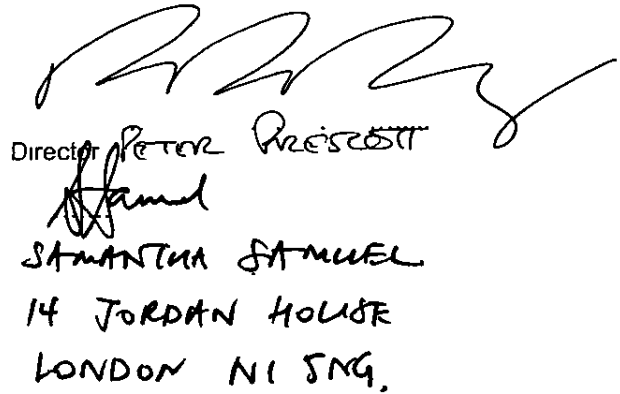 Director PETER PRESCOTT
SSamuel
SAMANTHA SAMUEL
14 JORDAN HOUSE
LONDON N1 5NG.